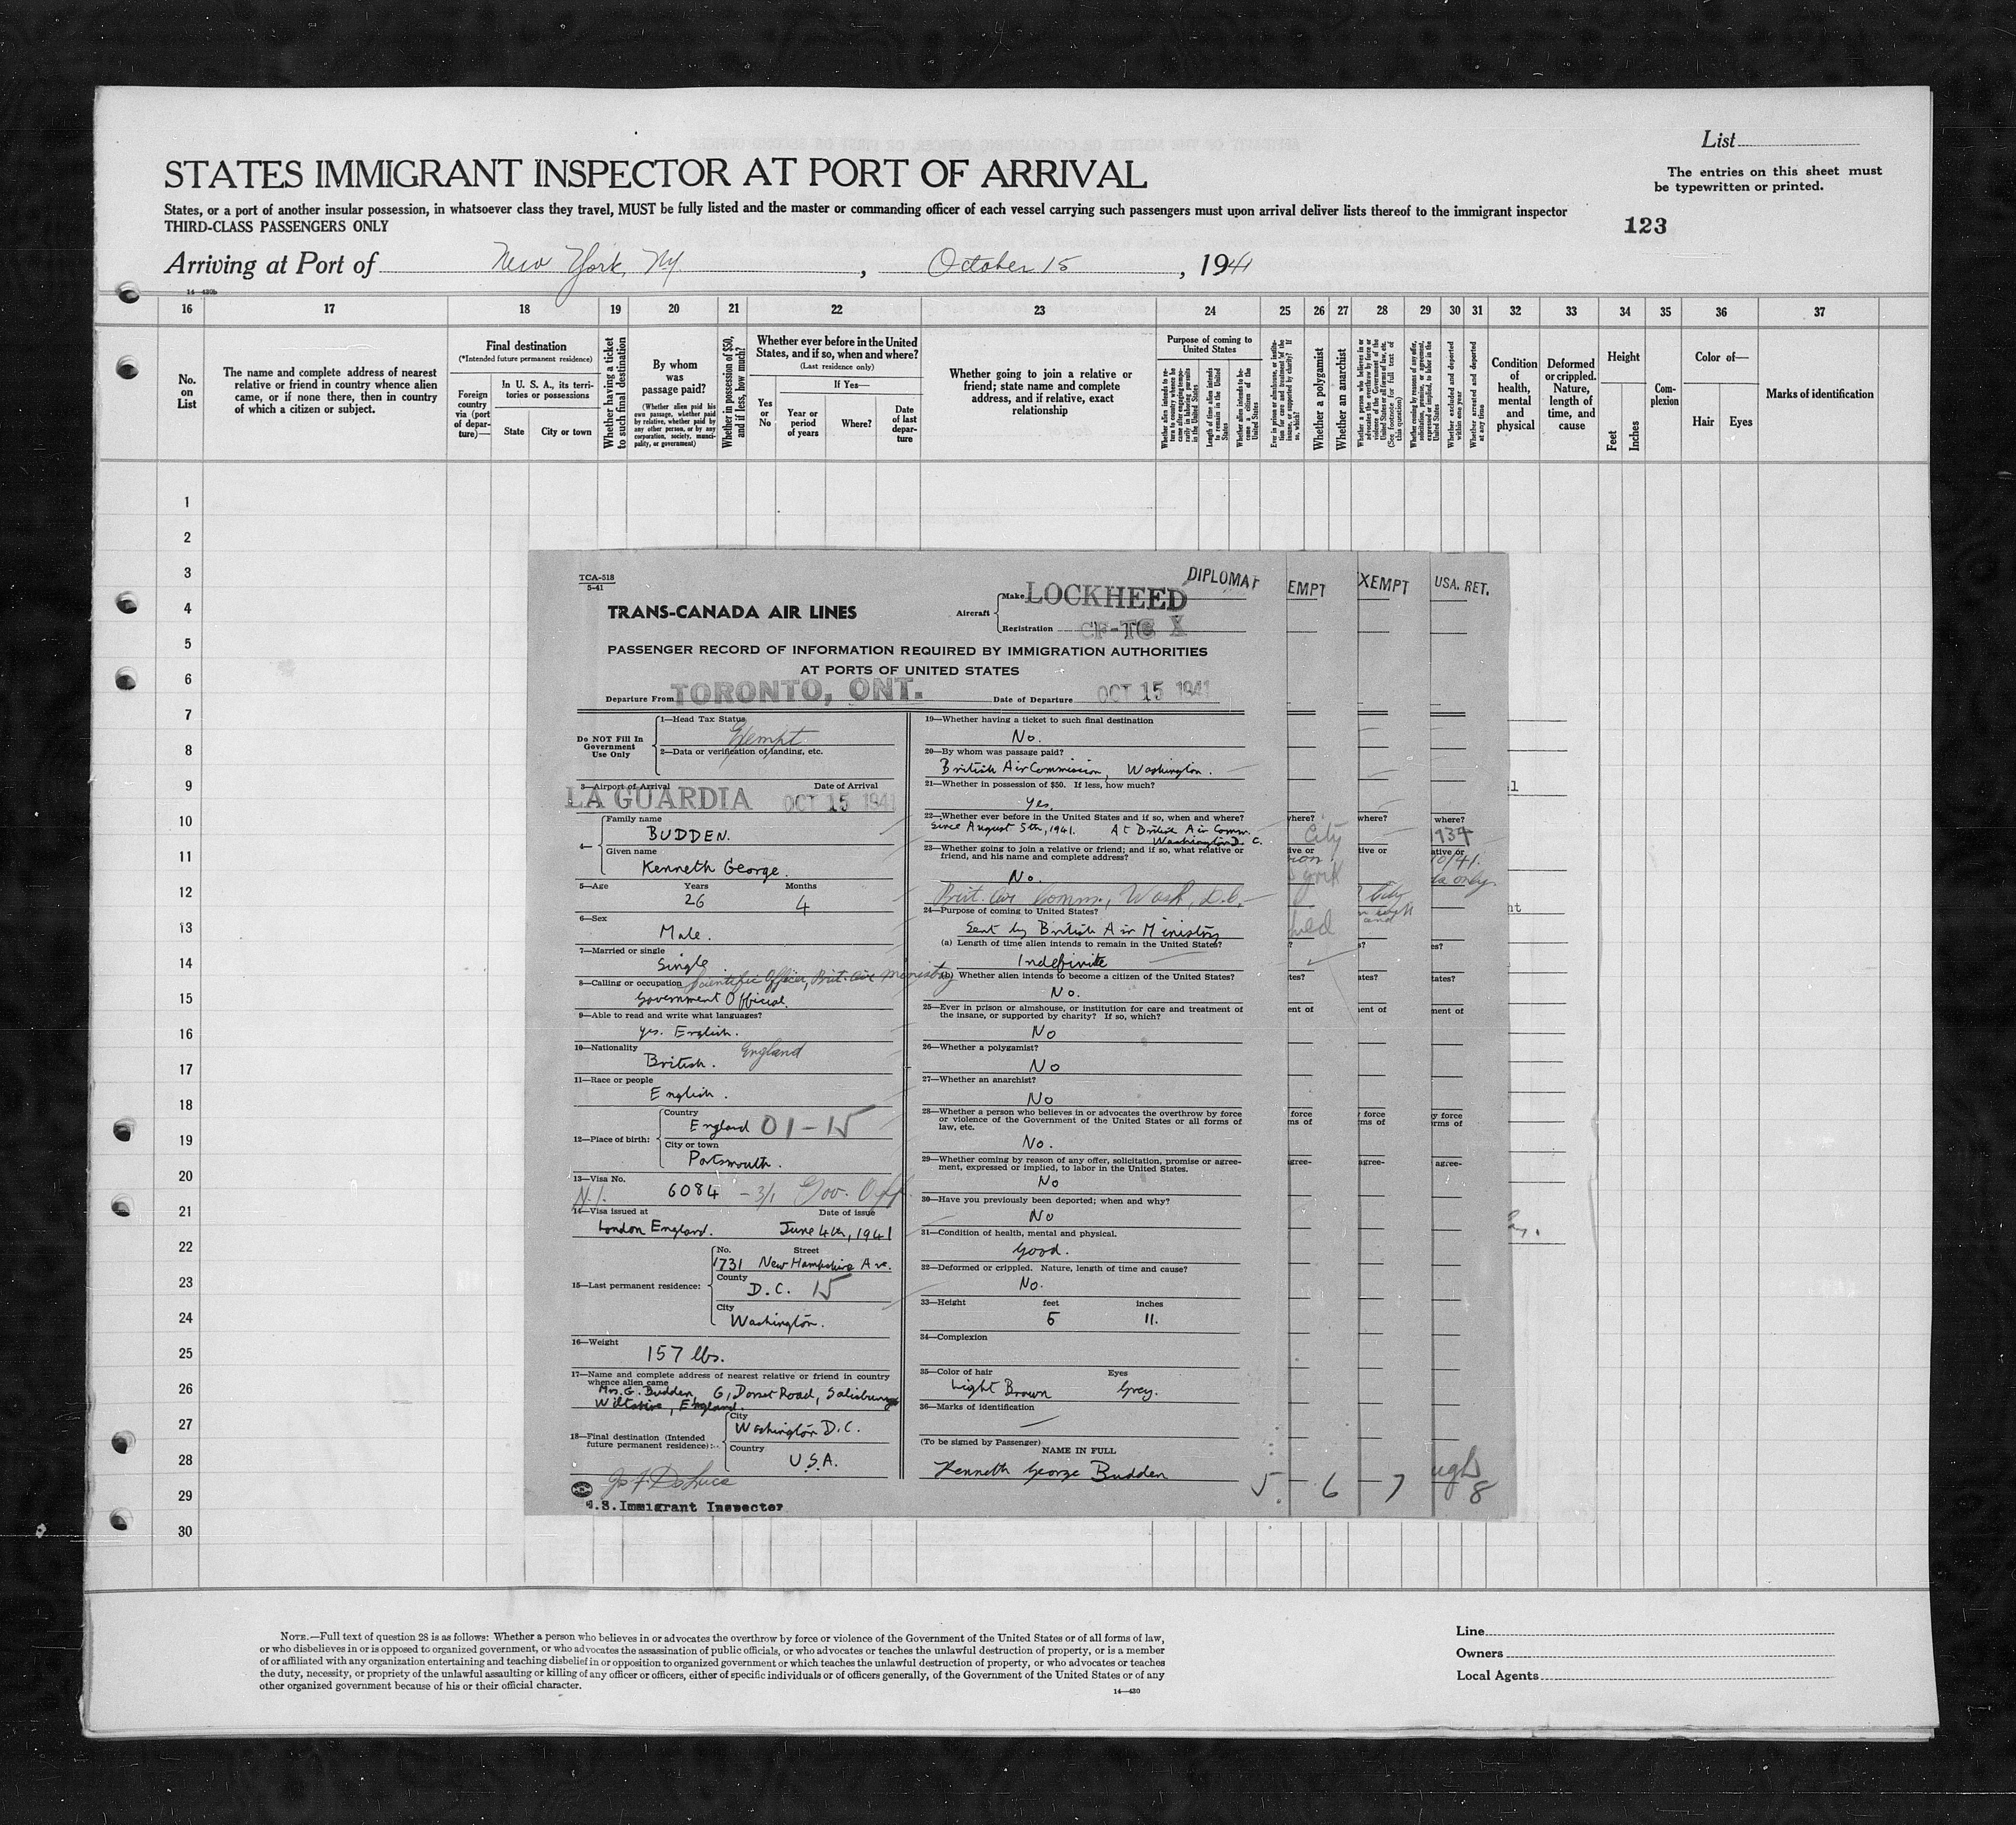 List
STATES IMMIGRANT INSPECTOR AT PORT OF ARRIVAL
The entries on this sheet must
be typewritten or printed.
States, or a port of another insular possession, in whatsoever class they travel, MUST be fully listed and the master or commanding officer of each vessel carrying such passengers must upon arrival deliver lists thereof to the immigrant inspector
THIRD-CLASS PASSENGERS ONLY
123
Arriving at Port of New York, NY. , October 15 , 1941
14—430b
16 17 18 19 20 21 22 23 24 25 26 27 28 29 30 31 32 33 34 35 36 37
No.
on
List
The name and complete address of nearest
relative or friend in country whence alien
came, or if none there, then in country
of which a citizen or subject.
Final destination
(*Intended future permanent residence)
Foreign
country
via (port
of depar-
ture)—
In U. S. A., its terri-
tories or possessions
State
City or town
Whether having a ticket
to such final destination
By whom
was
passage paid?
(Whether alien paid his
own passage, whether paid
by relative, whether paid by
any other person, or by any
corporation, society, munici-
pality, or government)
Whether in possession of $50,
and if less, how much?
Whether ever before in the United
States, and if so, when and where?
(Last residence only)
Yes
or
No
If Yes—
Year or
period
of years
Where?
Date
of last
depar-
ture
Whether going to join a relative or
friend; state name and complete
address, and if relative, exact
relationship
Purpose of coming to
United States
Whether alien intends to re-
turn to country whence he
came after engaging tempo-
rarily in laboring pursuits
in the United States
Length of time alien intends
to remain in the United
States
Whether alien intends to be-
come a citizen of the
United States
Ever in prison or almshouse, or institu-
tion for care and treatment of the
insane, or supported by charity? If
so, which?
Whether a polygamist
Whether an anarchist
Whether a person who believes in or
advocates the overthrow by force or
violence of the Government of the
United States or all forms of law, etc.
(See footnote for full text of
this question)
Whether coming by reasons of any offer,
solicitation, promise, or agreement,
expressed or implied, to labor in the
United States
Whether excluded and deported
within one year
Whether arrested and deported
at any time
Condition
of
health,
mental
and
physical
Deformed
or crippled.
Nature,
length of
time, and
cause
Height
Feet
Inches
Com-
plexion
Color of—
Hair
Eyes
Marks of identification
1
2
3
4
5
6
7
8
9
10
11
12
13
14
15
16
17
18
19
20
21
22
23
24
25
26
27
28
29
30
TCA-518
5-41
TRANS-CANADA AIR LINES
Aircraft
Make LOCKHEED
Registration CF-TC X
DIPLOMAT
EMPT
XEMPT
USA. RET.
PASSENGER RECORD OF INFORMATION REQUIRED BY IMMIGRATION AUTHORITIES
AT PORTS OF UNITED STATES
Departure From TORONTO, ONT. Date of Departure OCT 15 1941
Do NOT Fill In
Government
Use Only
1—Head Tax Status
Exempt
2—Data or verification of landing, etc.
3—Airport of Arrival Date of Arrival
LA GUARDIA OCT 15 1941
4—
Family name
BUDDEN.
Given name
Kenneth George.
5—Age Years Months
26 4
6—Sex
Male.
7—Married or single
Single
8—Calling or occupation Scientific Officer, Brit. Air Ministry
Government Official.
9—Able to read and write what languages?
yes. English.
10—Nationality
British. England
11—Race or people
English.
12—Place of birth:
Country
England 01-15
City or town
Portsmouth.
13—Visa No.
N.I. 6084 -3/1 Gov. Off.
14—Visa issued at Date of issue
London England. June 4th, 1941
15—Last permanent residence:
No. Street
1731 New Hampshire Ave.
County
D.C. 15
City
Washington.
16—Weight
157 lbs.
17—Name and complete address of nearest relative or friend in country
whence alien came
Mrs. G. Budden, 6, Dorset Road, Salisbury
Wiltshire, England.
18—Final destination (Intended
future permanent residence):
City
Washington D.C.
Country
U.S.A.
Jos. F. DeLuca
U.S. Immigrant Inspector
19—Whether having a ticket to such final destination
No.
20—By whom was passage paid?
British Air Commission, Washington.
21—Whether in possession of $50. If less, how much?
Yes.
22—Whether ever before in the United States and if so, when and where?
Since August 5th, 1941. At British Air Comm.
Washington D.C.
23—Whether going to join a relative or friend; and if so, what relative or
friend, and his name and complete address?
No.
Brit. Air Comm., Wash, D.C.
24—Purpose of coming to United States?
Sent by British Air Ministry
(a) Length of time alien intends to remain in the United States?
Indefinite
(b) Whether alien intends to become a citizen of the United States?
No.
25—Ever in prison or almshouse, or institution for care and treatment of
the insane, or supported by charity? If so, which?
No
26—Whether a polygamist?
No
27—Whether an anarchist?
No
28—Whether a person who believes in or advocates the overthrow by force
or violence of the Government of the United States or all forms of
law, etc.
No.
29—Whether coming by reason of any offer, solicitation, promise or agree-
ment, expressed or implied, to labor in the United States.
No
30—Have you previously been deported; when and why?
No
31—Condition of health, mental and physical.
Good.
32—Deformed or crippled. Nature, length of time and cause?
No.
33—Height feet inches
5 11.
34—Complexion
35—Color of hair Eyes
Light Brown Grey.
36—Marks of identification
—
(To be signed by Passenger)
NAME IN FULL
Kenneth George Budden
5 — 6 — 7 8
NOTE.—Full text of question 28 is as follows: Whether a person who believes in or advocates the overthrow by force or violence of the Government of the United States or of all forms of law,
or who disbelieves in or is opposed to organized government, or who advocates the assassination of public officials, or who advocates or teaches the unlawful destruction of property, or is a member
of or affiliated with any organization entertaining and teaching disbelief in or opposition to organized government or which teaches the unlawful destruction of property, or who advocates or teaches
the duty, necessity, or propriety of the unlawful assaulting or killing of any officer or officers, either of specific individuals or of officers generally, of the Government of the United States or of any
other organized government because of his or their official character.
14—430
Line
Owners
Local Agents